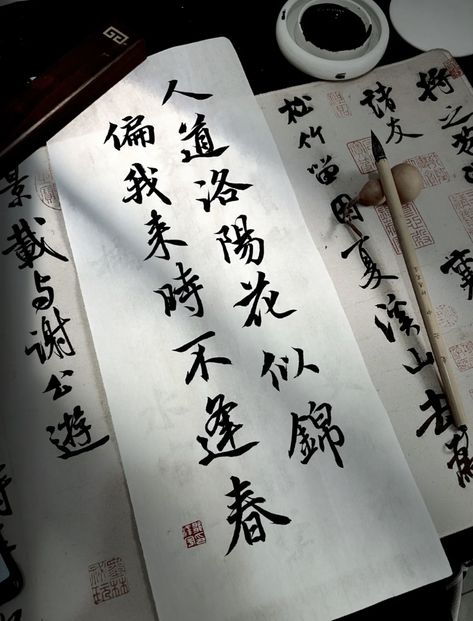 將之
諸友
松竹留因夏溪山去為
人道洛陽花似錦
偏我來時不逢春
景載与謝公遊